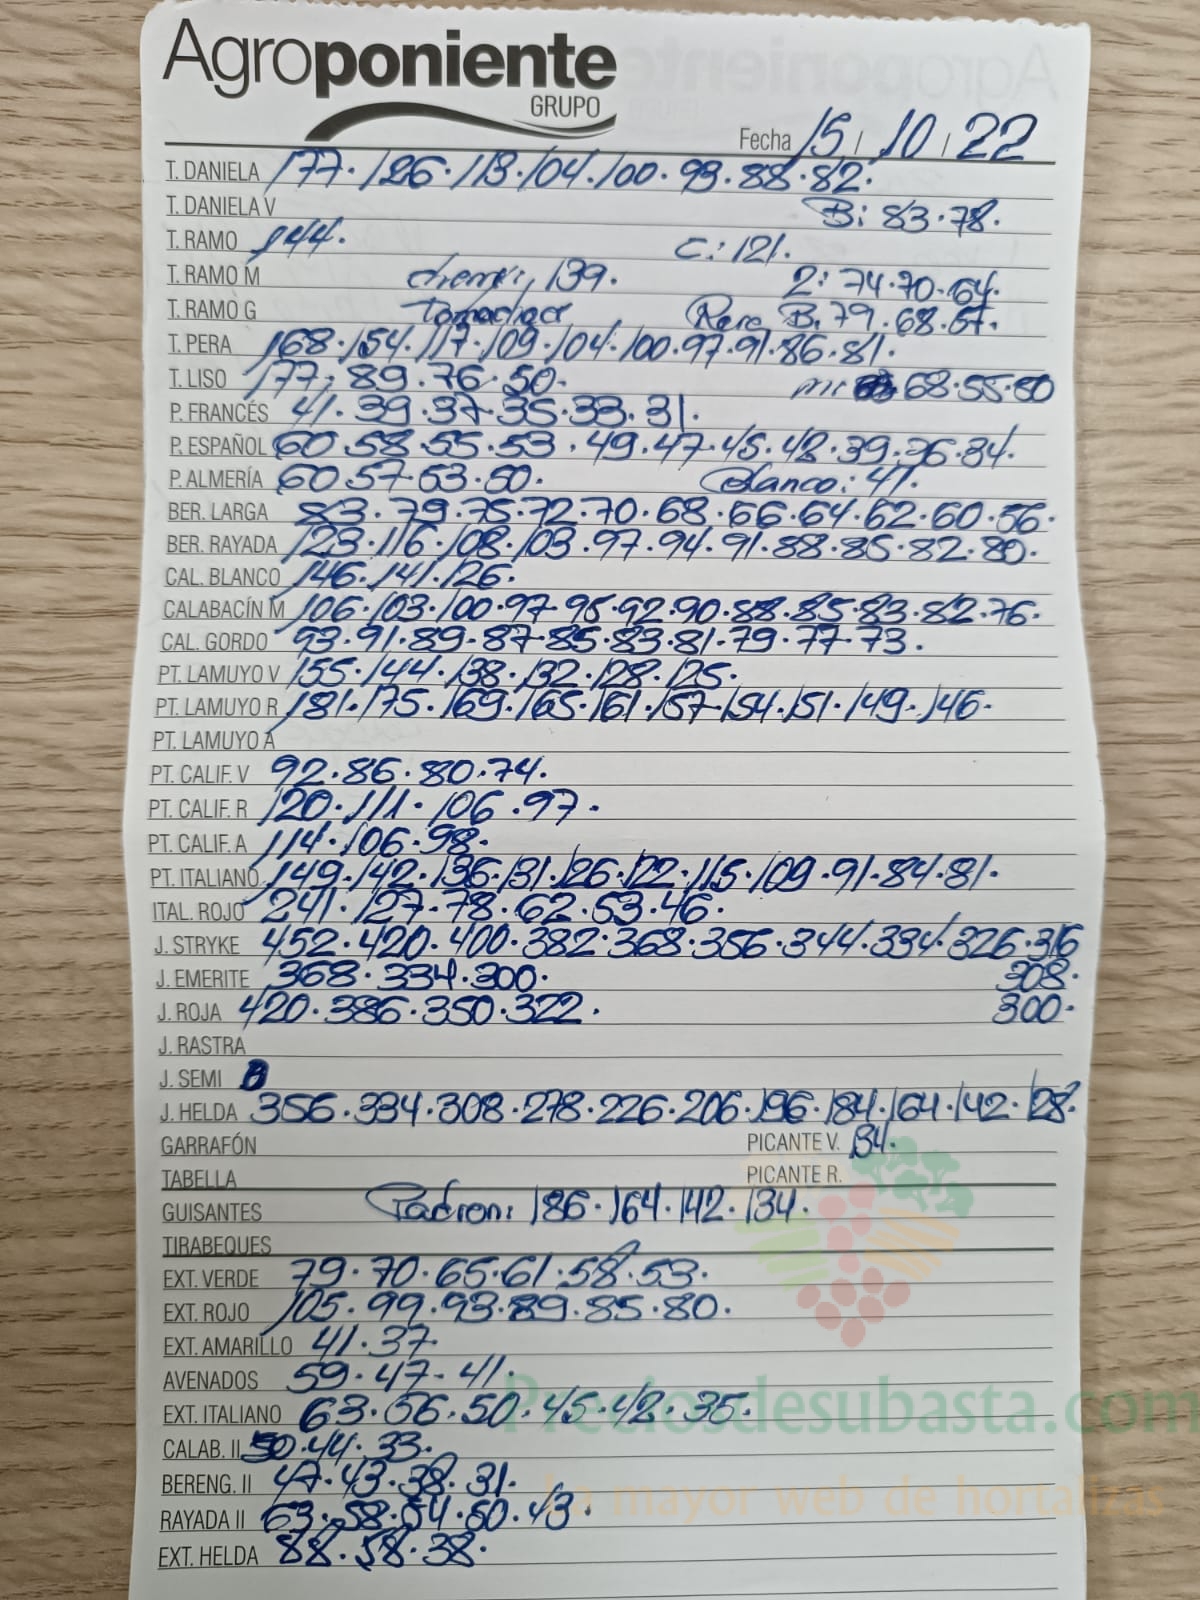 Agroponiente
GRUPO
Fecha 15 / 10 / 22
T. DANIELA 177. 126. 113. 104. 100. 93. 88. 82.
T. DANIELA V B: 83. 78.
T. RAMO 144. C: 121.
T. RAMO M 139. 2: 74. 70. 64.
T. RAMO G Pera B. 79. 68. 57.
T. PERA 168. 154. 117. 109. 104. 100. 97. 91. 86. 81.
T. LISO 177. 89. 76. 50. m: 68. 55. 50
P. FRANCÉS 41. 39. 37. 35. 33. 31.
P. ESPAÑOL 60. 58. 55. 53. 49. 47. 45. 42. 39. 36. 34.
P. ALMERÍA 60. 57. 53. 50. Blanco: 41.
BER. LARGA 83. 79. 75. 72. 70. 68. 66. 64. 62. 60. 56.
BER. RAYADA 123. 116. 108. 103. 97. 94. 91. 88. 85. 82. 80.
CAL. BLANCO 146. 141. 126.
CALABACÍN M 106. 103. 100. 97. 95. 92. 90. 88. 85. 83. 82. 76.
CAL. GORDO 93. 91. 89. 87. 85. 83. 81. 79. 77. 73.
PT. LAMUYO V 155. 144. 138. 132. 128. 125.
PT. LAMUYO R 181. 175. 169. 165. 161. 157. 154. 151. 149. 146.
PT. LAMUYO A
PT. CALIF. V 92. 86. 80. 74.
PT. CALIF. R 120. 111. 106. 97.
PT. CALIF. A 114. 106. 98.
PT. ITALIANO 149. 142. 136. 131. 126. 122. 115. 109. 91. 84. 81.
ITAL. ROJO 241. 127. 78. 62. 53. 46.
J. STRYKE 452. 420. 400. 382. 368. 356. 344. 334. 326. 316
J. EMERITE 368. 334. 300. 308.
J. ROJA 420. 386. 350. 322. 300.
J. RASTRA
J. SEMI
J. HELDA 356. 334. 308. 278. 226. 206. 196. 184. 164. 142. 128.
GARRAFÓN PICANTE V. 134.
TABELLA PICANTE R.
GUISANTES Padron: 186. 164. 142. 134.
TIRABEQUES
EXT. VERDE 79. 70. 65. 61. 58. 53.
EXT. ROJO 105. 99. 93. 89. 85. 80.
EXT. AMARILLO 41. 37.
AVENADOS 59. 47. 41.
EXT. ITALIANO 63. 56. 50. 45. 42. 35.
Preciosdesubasta.com
CALAB. II 50. 44. 33.
BERENG. II 47. 43. 38. 31.
La mayor web de hortalizas
RAYADA II 63. 58. 54. 50. 43.
EXT. HELDA 88. 58. 38.